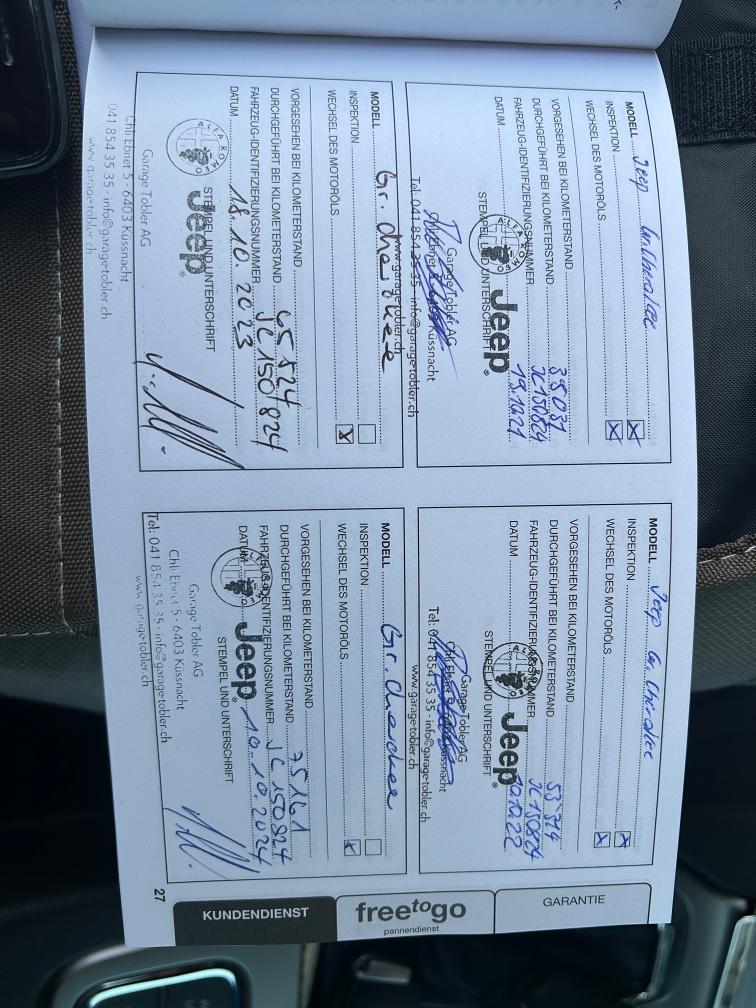 MODELL Jeep Gr. Cherokee
INSPEKTION
WECHSEL DES MOTORÖLS
VORGESEHEN BEI KILOMETERSTAND
DURCHGEFÜHRT BEI KILOMETERSTAND
FAHRZEUG-IDENTIFIZIERUNGSNUMMER JC150824
DATUM
Jeep
STEMPEL UND UNTERSCHRIFT
Garage Tobler AG
Küssnacht
Tel: 041 854 35 35 - info@garage-tobler.ch
www.garage-tobler.ch
MODELL Jeep Gr. Cherokee
INSPEKTION
WECHSEL DES MOTORÖLS
VORGESEHEN BEI KILOMETERSTAND
DURCHGEFÜHRT BEI KILOMETERSTAND
FAHRZEUG-IDENTIFIZIERUNGSNUMMER JC150824
DATUM
Jeep
STEMPEL UND UNTERSCHRIFT
Garage Tobler AG
Küssnacht
Tel: 041 854 35 35 - info@garage-tobler.ch
www.garage-tobler.ch
MODELL Gr. cherokee
INSPEKTION
WECHSEL DES MOTORÖLS
VORGESEHEN BEI KILOMETERSTAND
DURCHGEFÜHRT BEI KILOMETERSTAND 65524
FAHRZEUG-IDENTIFIZIERUNGSNUMMER JC150824
DATUM 18.10.2023
STEMPEL UND UNTERSCHRIFT
Jeep
Garage Tobler AG
Chli Ebnet 5 - 6403 Küssnacht
041 854 35 35 - info@garage-tobler.ch
www.garage-tobler.ch
MODELL Gr. Cherokee
INSPEKTION
WECHSEL DES MOTORÖLS
VORGESEHEN BEI KILOMETERSTAND
DURCHGEFÜHRT BEI KILOMETERSTAND 75161
FAHRZEUG-IDENTIFIZIERUNGSNUMMER JC150824
DATUM 10.10.2024
Jeep
STEMPEL UND UNTERSCHRIFT
Garage Tobler AG
Chli Ebnet 5 - 6403 Küssnacht
Tel: 041 854 35 35 - info@garage-tobler.ch
www.garage-tobler.ch
GARANTIE
freetogo
pannendienst
KUNDENDIENST
27